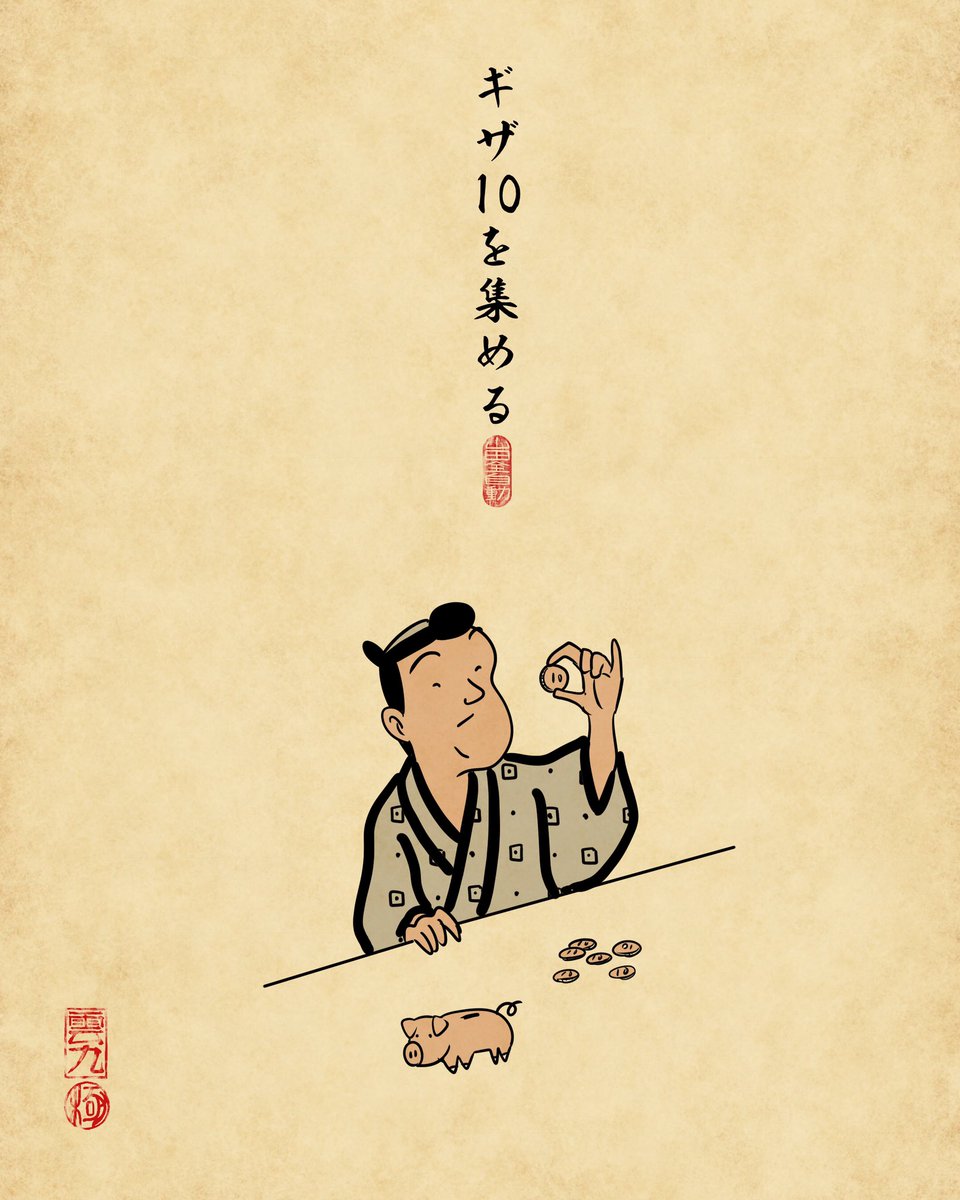 ギザ10を集める
10